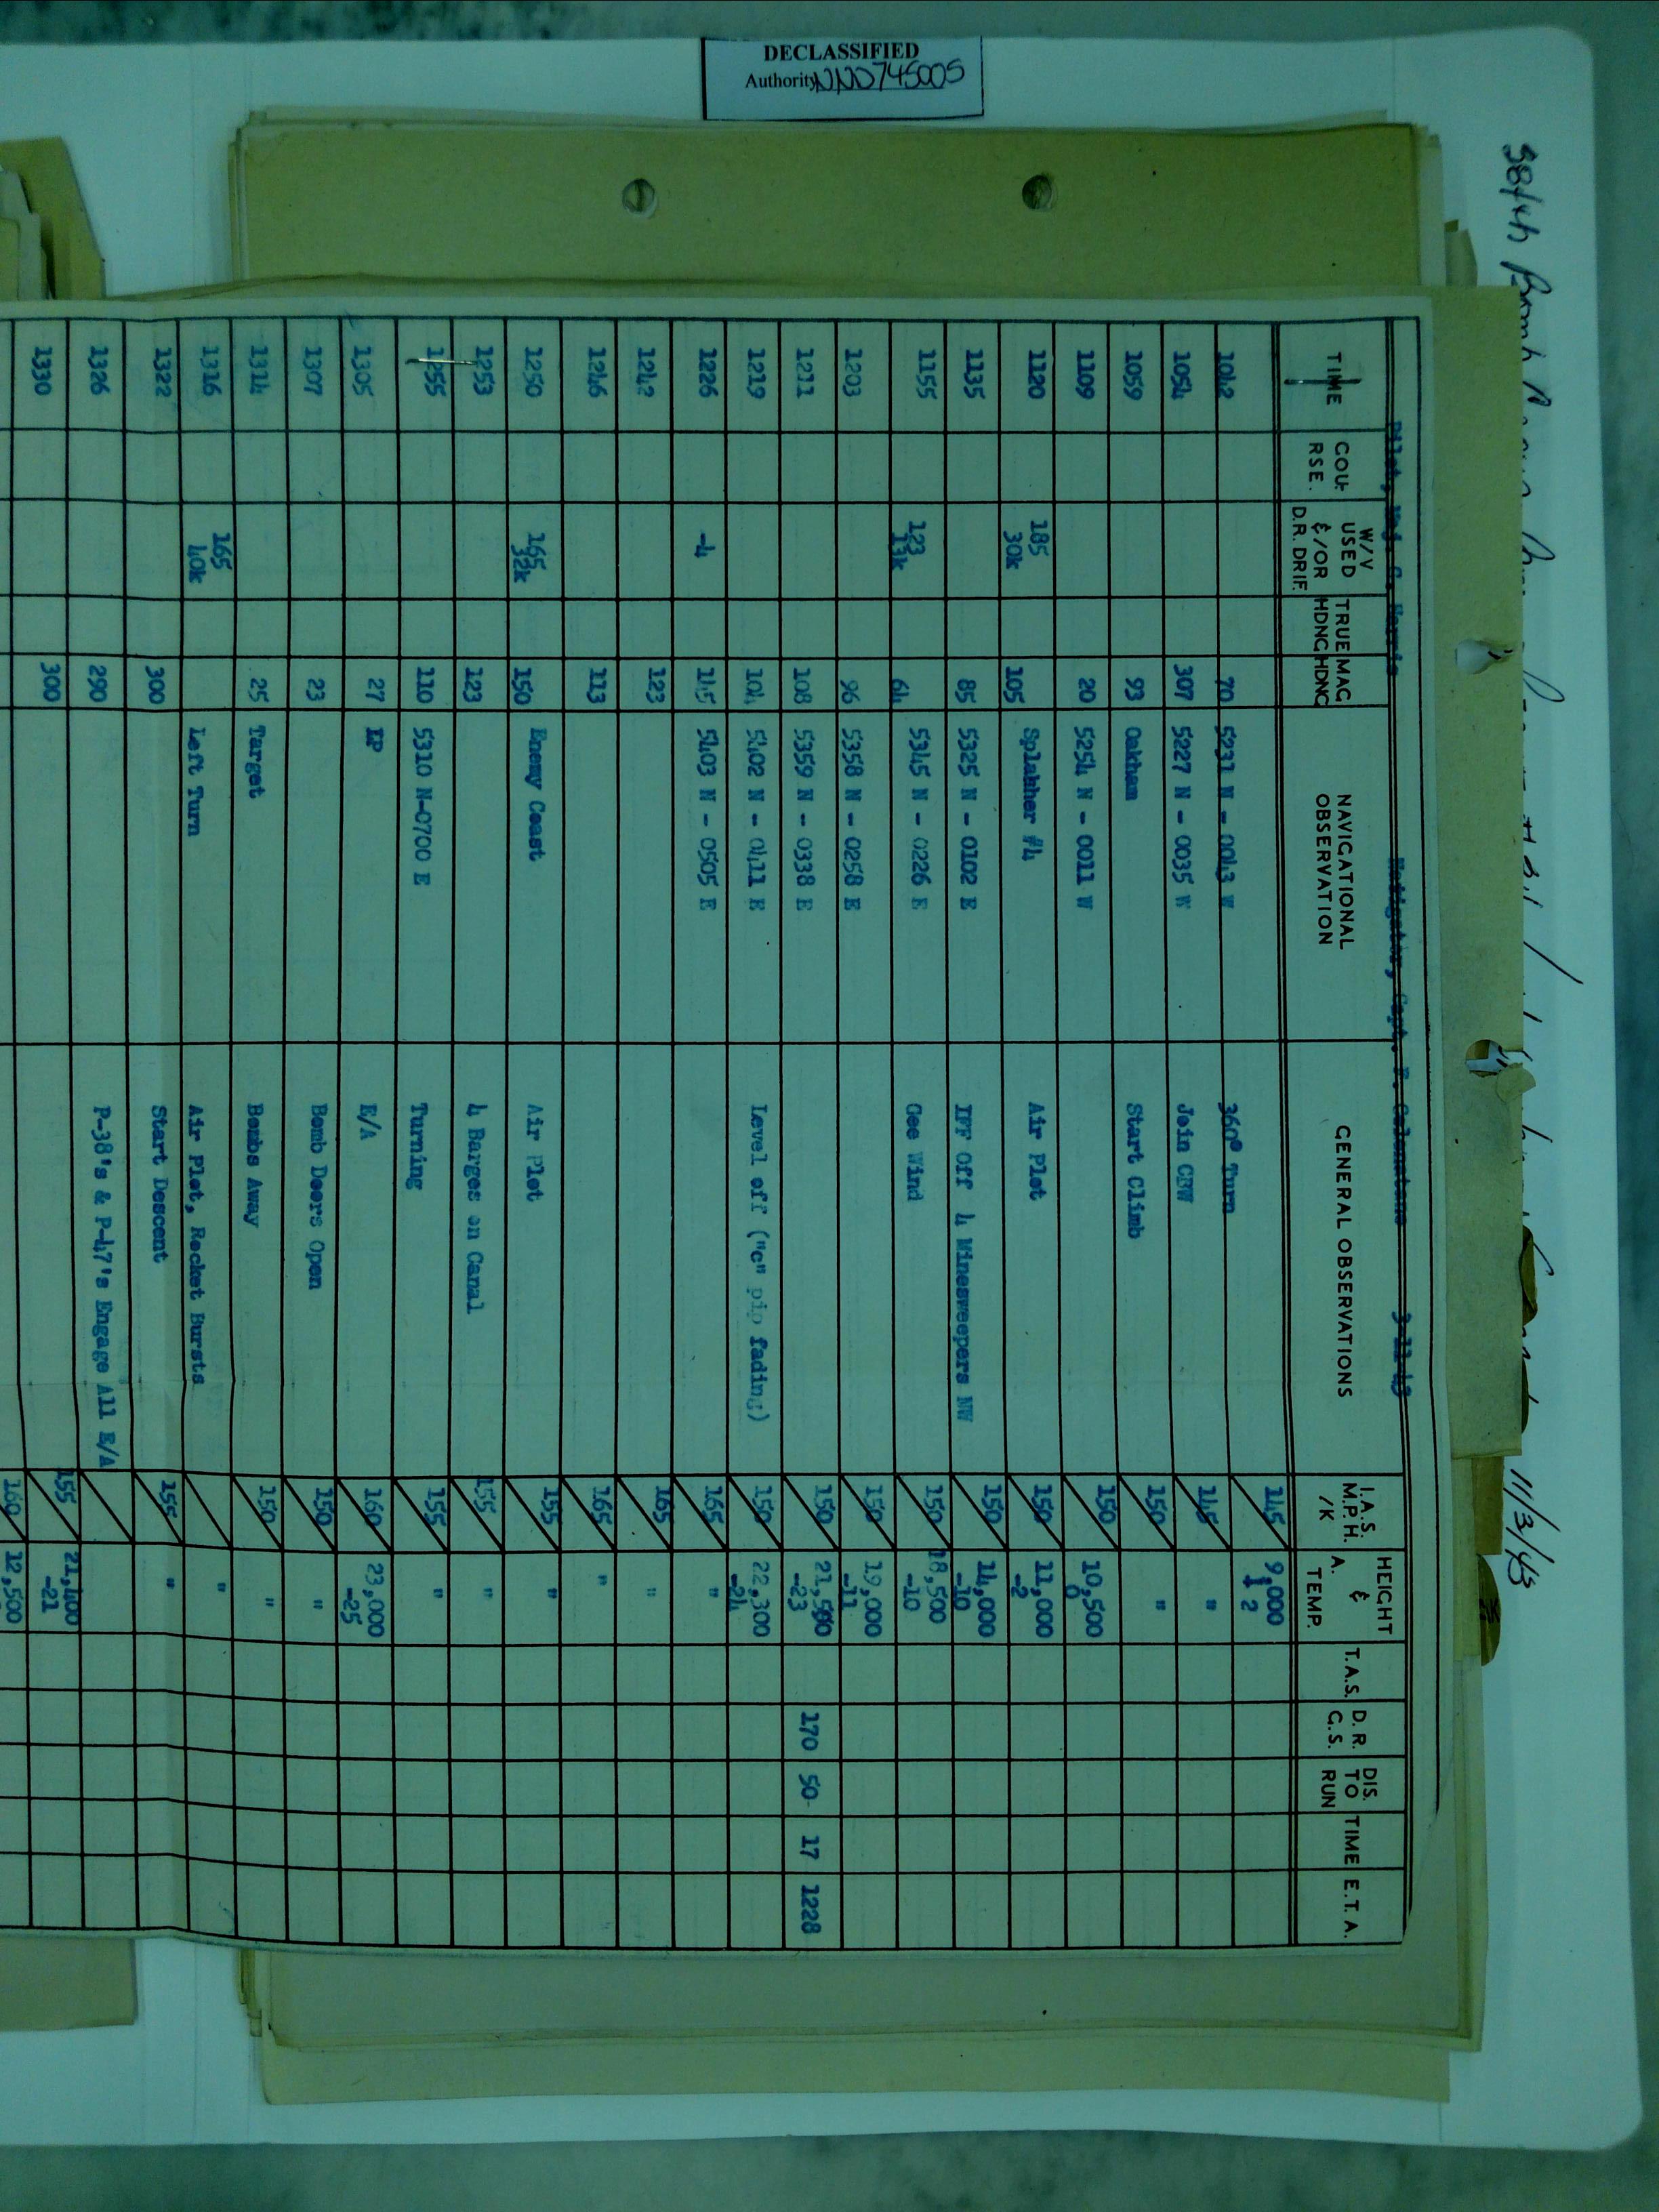 DECLASSIFIED
Authority NND745005
384th Bomb 11/3/43
Pilot, Maj. G. Harris Navigator, Capt. F. Celenstane 3-11-43
TIME COU-RSE. W/V USED &/OR D.R. DRIF. TRUE HDNG MAG HDNG NAVIGATIONAL OBSERVATION GENERAL OBSERVATIONS I.A.S. M.P.H. /K HEIGHT & A. TEMP. T.A.S. D.R. G.S. DIS. TO RUN TIME E.T.A.
1042 70 5231 N - 0043 W 360° Turn 145 9,000 + 2
1054 307 5227 N - 0035 W Join CBW 145 "
1059 93 Oakham Start Climb 150 "
1109 20 5254 N - 0011 W 150 10,500 0
1120 185 30k 105 Splahher #4 Air Plot 150 11,000 -2
1135 85 5325 N - 0102 E IFF Off 4 Minesweepers NW 150 14,000 -10
1155 123 13k 64 5345 N - 0226 E Gee Wind 150 18,500 -10
1203 96 5358 N - 0258 E 150 19,000 -11
1211 108 5359 N - 0338 E 150 21,500 -23 170 50 17 1228
1219 104 5402 N - 0411 E Level off ("c" pip fading) 150 22,300 -24
1226 -4 115 5403 N - 0505 E 165 "
1242 123 165 "
1246 113 165 "
1250 165 32k 150 Enemy Coast Air Plot 155 "
1253 123 4 Barges on Canal 155 "
1255 110 5310 N-0700 E Turning 155 "
1305 27 IP E/A 160 23,000 -25
1307 23 Bomb Doors Open 150 "
1314 25 Target Bombs Away 150 "
1316 165 40k Left Turn Air Plot, Rocket Bursts "
1322 300 Start Descent 155 "
1326 290 P-38's & P-47's Engage All E/A
1330 300 155 21,400 -21
160 12,500